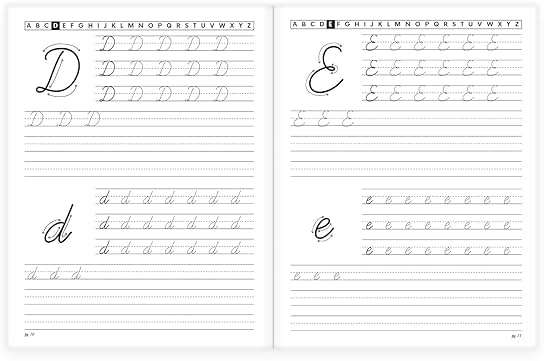 A B C D E F G H I J K L M N O P Q R S T U V W X Y Z
D
D D D D D
D D D D D
D D D D D
D D D
d
d d d d d d d
d d d d d d d
d d d d d d d
d d d
A B C D E F G H I J K L M N O P Q R S T U V W X Y Z
E
E E E E E E
E E E E E E
E E E E E E
E E E
e
e e e e e e e
e e e e e e e
e e e e e e e
e e e